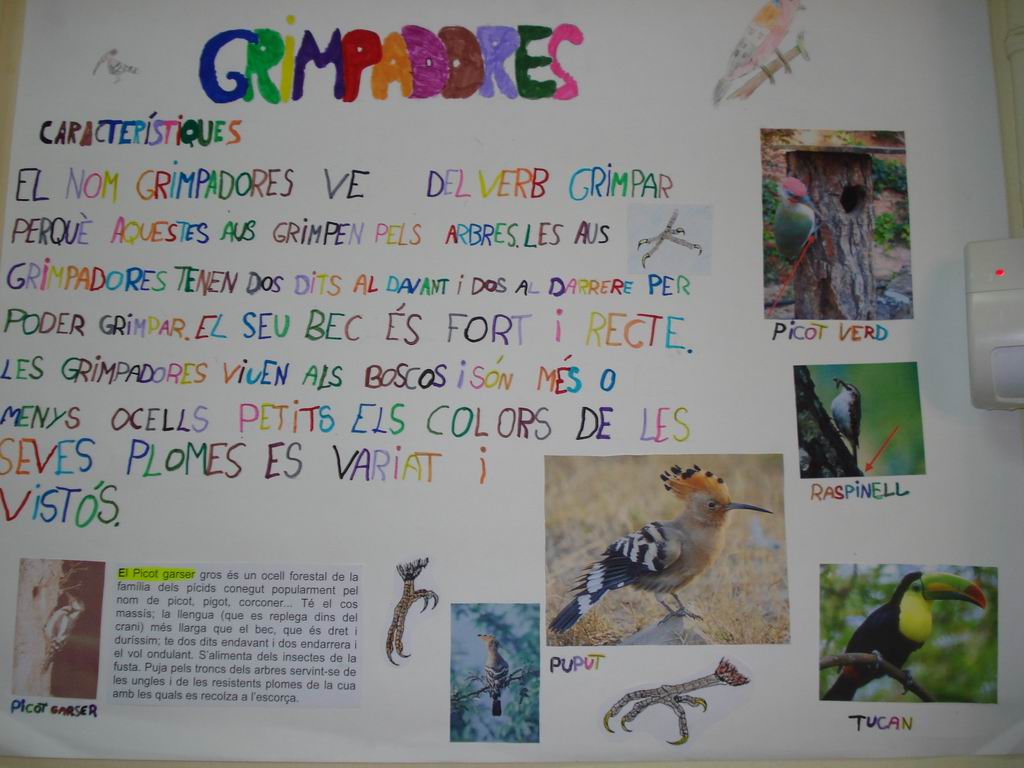 GRIMPADORES
CARACTERÍSTIQUES
EL NOM GRIMPADORES VE DEL VERB GRIMPAR
PERQUÈ AQUESTES AUS GRIMPEN PELS ARBRES. LES AUS
GRIMPADORES TENEN DOS DITS AL DAVANT i DOS AL DARRERE PER
PODER GRIMPAR. EL SEU BEC ÉS FORT i RECTE.
LES GRIMPADORES VIUEN ALS BOSCOS i SÓN MÉS O
MENYS OCELLS PETITS ELS COLORS DE LES
SEVES PLOMES ES VARIAT i
VISTÓS.
PICOT VERD
RASPINELL
El Picot garser gros és un ocell forestal de la
família dels pícids conegut popularment pel
nom de picot, pigot, corconer... Té el cos
massís; la llengua (que es replega dins del
crani) més llarga que el bec, que és dret i
duríssim; te dos dits endavant i dos endarrera i
el vol ondulant. S'alimenta dels insectes de la
fusta. Puja pels troncs dels arbres servint-se de
les ungles i de les resistents plomes de la cua
amb les quals es recolza a l'escorça.
PICOT GARSER
PUPUT
TUCAN